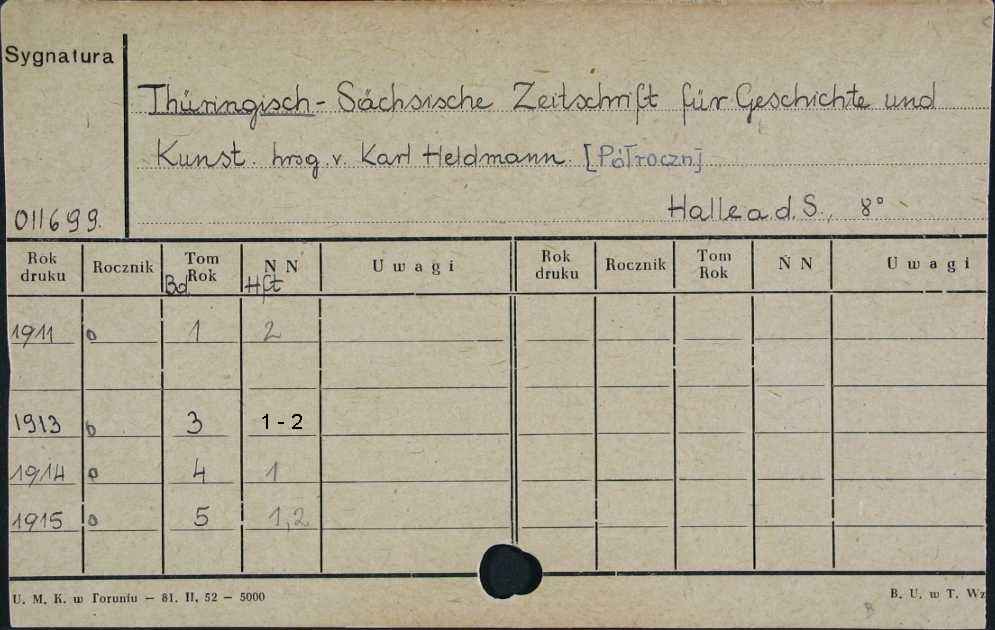 Sygnatura
Thüringisch-Sächsische Zeitschrift für Geschichte und
Kunst. hrsg. v. Karl Heldmann [Półroczn]
011699. Halle a. d. S., 8°
Rok druku Rocznik Tom Rok N N U w a g i Rok druku Rocznik Tom Rok N N U w a g i
Bd Hft
1911 o 1 2
1913 o 3 1-2
1914 o 4 1
1915 o 5 1,2
U. M. K. w Toruniu — 81. II, 52 — 5000 B. U. w T. Wz